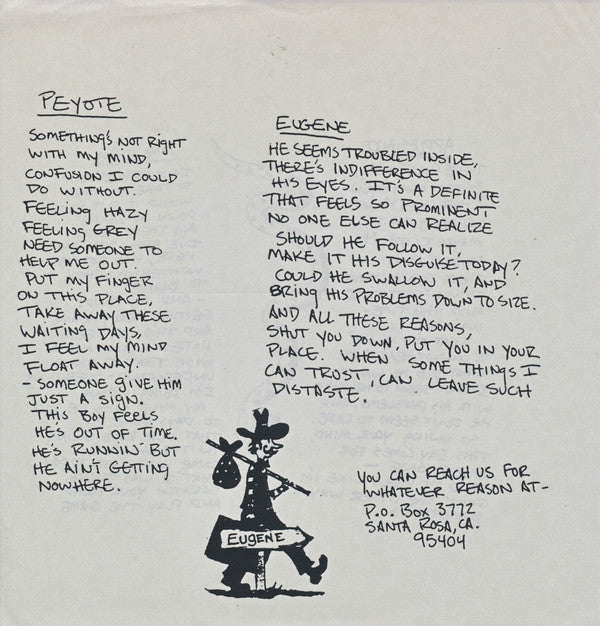 PEYOTE
SOMETHING'S NOT RIGHT
WITH MY MIND,
CONFUSION I COULD
DO WITHOUT.
FEELING HAZY
FEELING GREY
NEED SOMEONE TO
HELP ME OUT.
PUT MY FINGER
ON THIS PLACE,
TAKE AWAY THESE
WAITING DAYS,
I FEEL MY MIND
FLOAT AWAY.
- SOMEONE GIVE HIM
JUST A SIGN.
THIS BOY FEELS
HE'S OUT OF TIME.
HE'S RUNNIN' BUT
HE AIN'T GETTING
NOWHERE.
EUGENE
HE SEEMS TROUBLED INSIDE,
THERE'S INDIFFERENCE IN
HIS EYES. IT'S A DEFINITE
THAT FEELS SO PROMINENT
NO ONE ELSE CAN REALIZE
SHOULD HE FOLLOW IT,
MAKE IT HIS DISGUISE TODAY?
COULD HE SWALLOW IT, AND
BRING HIS PROBLEMS DOWN TO SIZE.
AND ALL THESE REASONS,
SHUT YOU DOWN, PUT YOU IN YOUR
PLACE. WHEN SOME THINGS I
CAN TRUST, CAN LEAVE SUCH
DISTASTE.
EUGENE
YOU CAN REACH US FOR
WHATEVER REASON AT-
P.O. BOX 3772
SANTA ROSA, CA.
95404